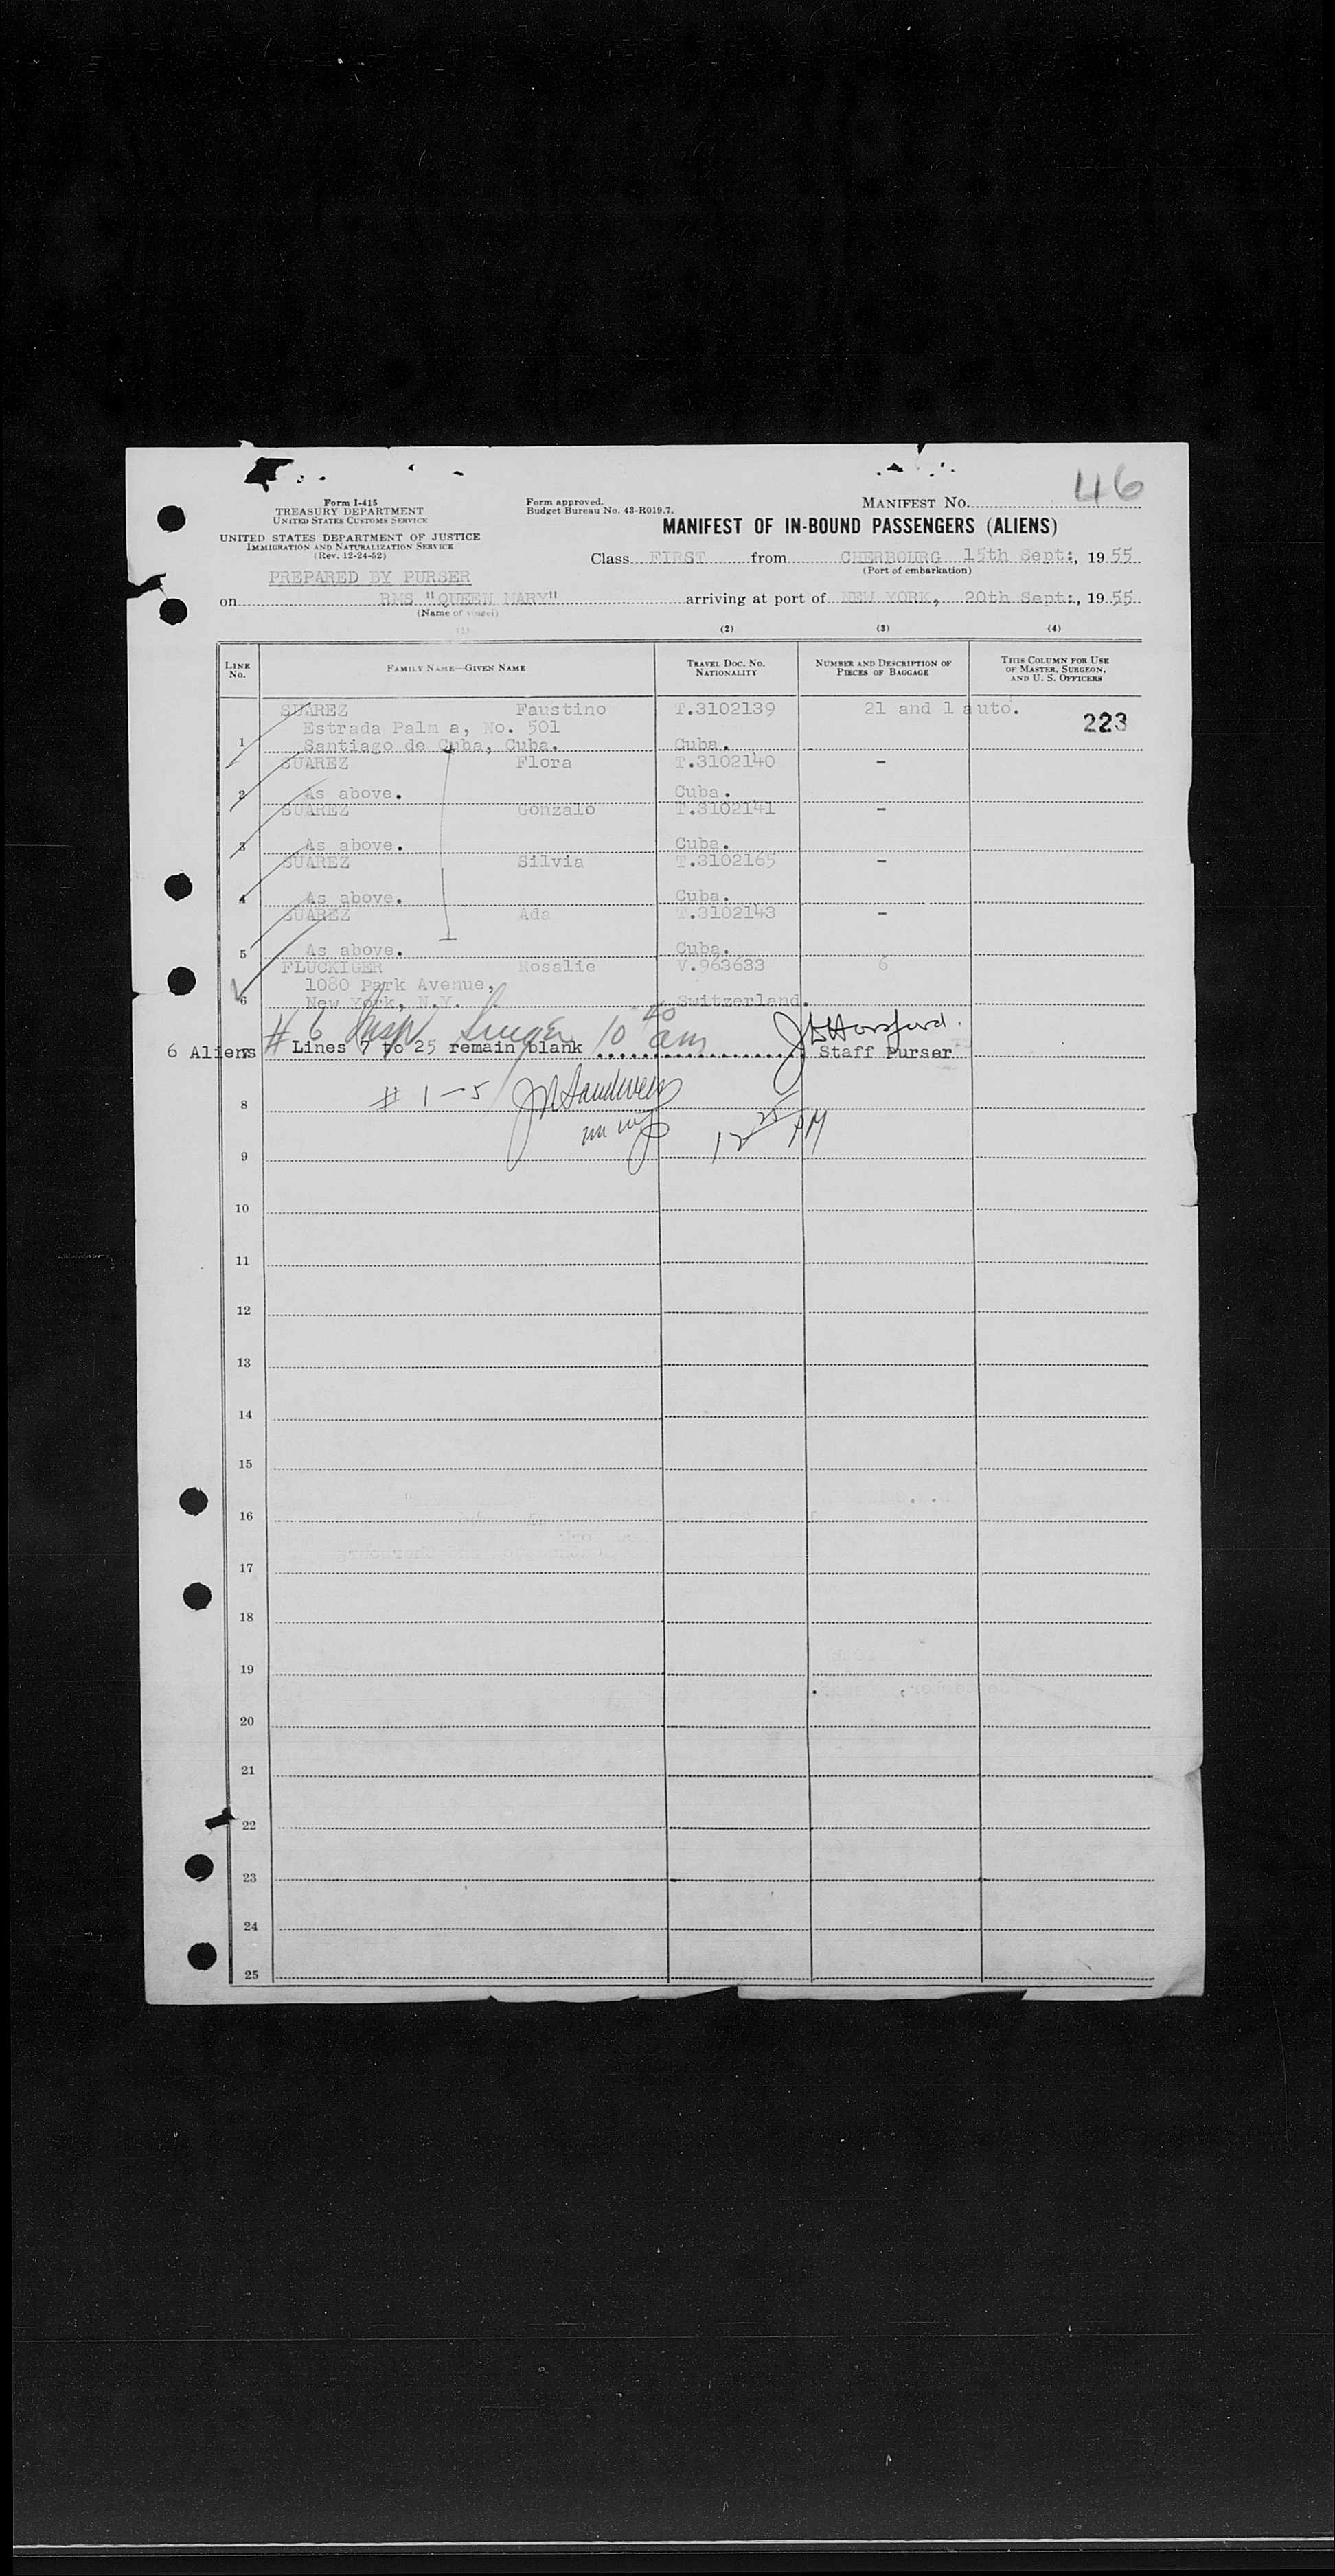 46
Form I-415
TREASURY DEPARTMENT
UNITED STATES CUSTOMS SERVICE
UNITED STATES DEPARTMENT OF JUSTICE
IMMIGRATION AND NATURALIZATION SERVICE
(Rev. 12-24-52)
PREPARED BY PURSER
Form approved.
Budget Bureau No. 43-R019.7.
MANIFEST NO.
MANIFEST OF IN-BOUND PASSENGERS (ALIENS)
Class FIRST from CHERBOURG 15th Sept:, 1955
(Port of embarkation)
on RMS "QUEEN MARY" arriving at port of NEW YORK, 20th Sept:, 1955
(Name of vessel)
(1) (2) (3) (4)
LINE NO. FAMILY NAME—GIVEN NAME TRAVEL DOC. NO. NATIONALITY NUMBER AND DESCRIPTION OF PIECES OF BAGGAGE THIS COLUMN FOR USE OF MASTER, SURGEON, AND U. S. OFFICERS
SUAREZ Faustino T.3102139 21 and 1 auto. 223
Estrada Palm a, No. 501
1 Santiago de Cuba, Cuba. Cuba.
SUAREZ Flora T.3102140 -
2 As above. Cuba.
SUAREZ Gonzalo T.3102141 -
3 As above. Cuba.
SUAREZ Silvia T.3102165 -
4 As above. Cuba.
SUAREZ Ada T.3102143 -
5 As above. Cuba.
FLUCKIGER Rosalie V.963633 6
1080 Park Avenue,
6 New York, N.Y. Switzerland.
# 6 Insp 10 40 am
6 Aliens 7 Lines 7 to 25 remain blank Staff Purser
# 1-5
8
12 25 PM
9
10
11
12
13
14
15
16
17
18
19
20
21
22
23
24
25